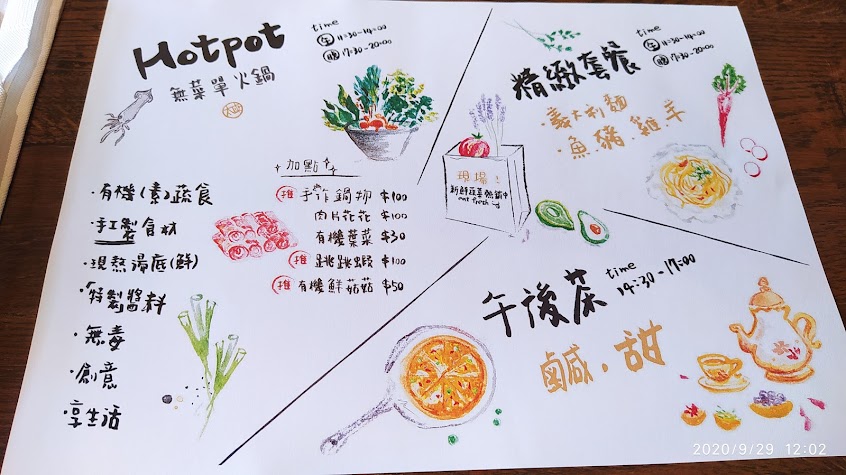 Hotpot
無菜單火鍋
time
午 11:30-14:00
晚 17:30-20:00
·有機(素)蔬食
·手工製食材
·現熬湯底(鮮)
·特製醬料
·無毒
·創意
·享生活
加點
推 手作鍋物 $100
肉片花花 $100
有機葉菜 $30
推 跳跳蝦 $100
推 有機鮮菇菇 $50
精緻套餐
time
午 11:30-14:00
晚 17:30-20:00
·義大利麵
·魚.豬.雞.羊
現場!
新鮮蔬菜熱銷中
午後茶
time
14:30-17:00
鹹.甜
2020/9/29 12:02